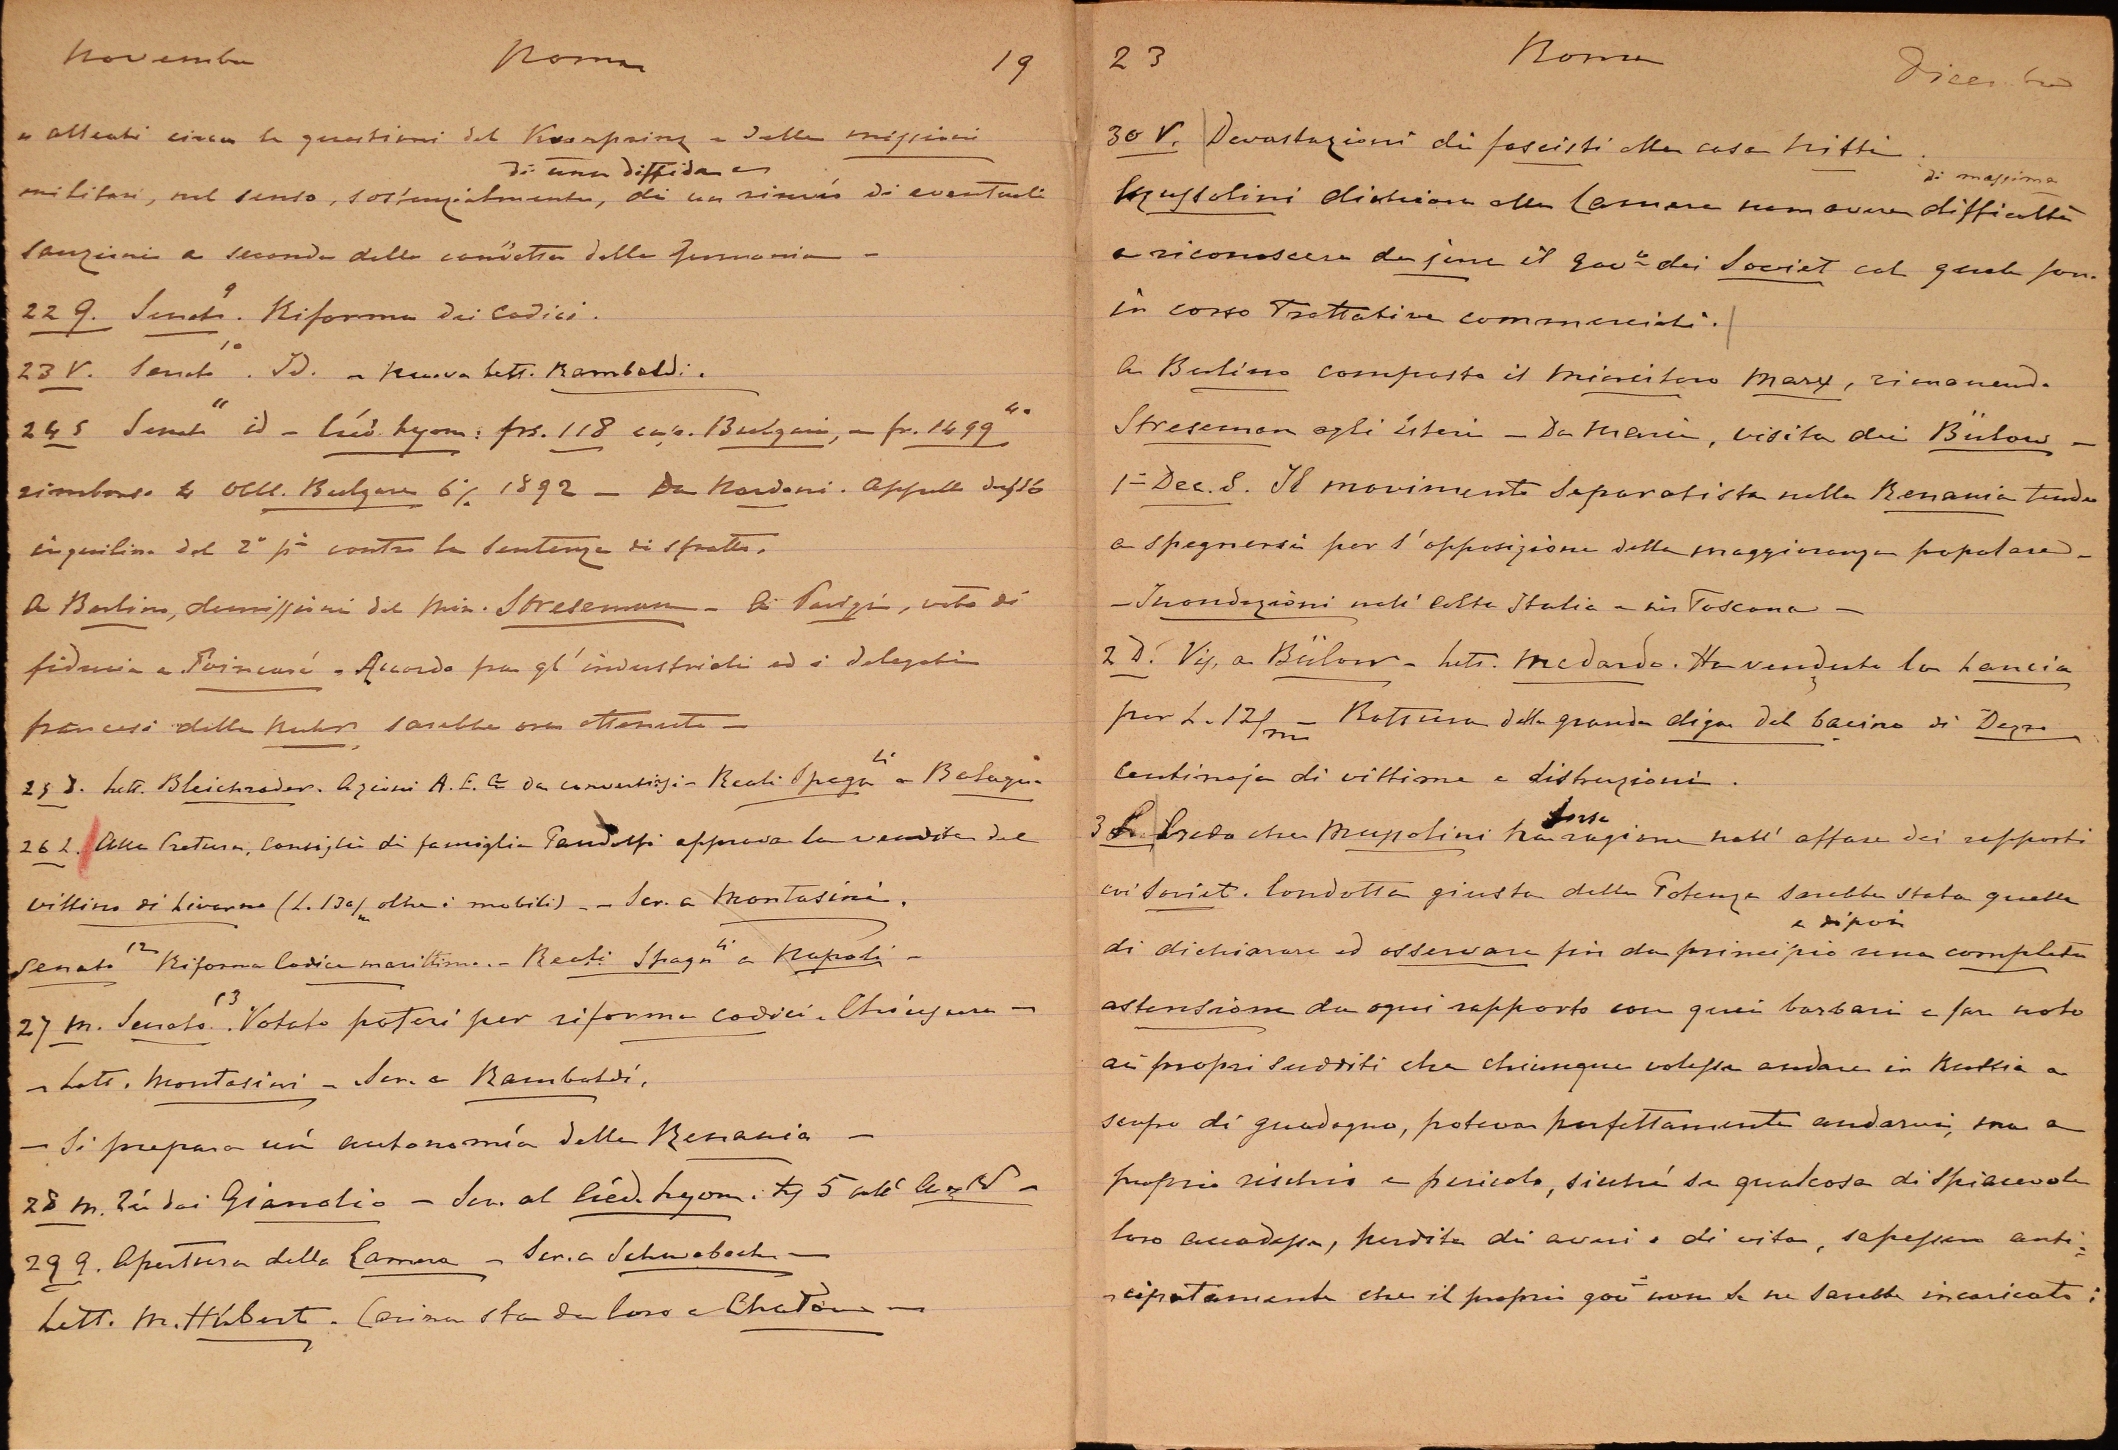 Novembre Roma 19
alleati circa le questioni del Kronprinz e delle missioni
di una diffida e
militari, nel senso, sostanzialmente, di un rinvio di eventuali
sanzioni a seconda della condotta della Germania –
22 G. Senato 9. Riforma dei codici.
23 V. Senato 10. Id. – Nuova lett. Rambaldi.
24 S Senato 11 id – Créd. Lyon: frs. 118 Bulgari, – fr. 1499 40
rimborso 4 Obbl. Bulgare 6% 1892 – Da Nardoni. Appello
inquilino del 2° p° contro la sentenza di sfratto.
A Berlino, dimissioni del Min. Stresemann – A Parigi, voto di
fiducia a Poincaré – Accordo fra gl'industriali ed i delegati
francesi della Ruhr, sarebbe ora ottenuto –
25 D. Lett. Bleichroder. Azioni A.E.G. da convertirsi – Reali Spagnli a Bologna
26 L. Alla Pretura, Consiglio di famiglia Pandolfi approva la vendita del
villino di Livorno (L. 130/m oltre i mobili) – Scr. a Montasini.
Senato 12 Riforma Codice marittimo. – Reali Spagnli a Napoli –
27 M. Senato 13. Votato poteri per riforma codici. Chiusura –
– Lett. Montasini – Scr. a Rambaldi.
– Si prepara un' autonomia della Renania –
28 M. Tè dai Gianolio – Scr. al Créd. Lyon. 5
29 G. Apertura della Camera – Scr. a Schwabach –
Lett. M. Hubert. Carina sta da loro a Chatou –
23 Roma Dicembre
30 V. Devastazioni di fascisti alla casa Nitti.
di massima
Mussolini dichiara alla Camera non avere difficoltà
a riconoscere de jure il Govo dei Soviet col quale son
in corso trattative commerciali.
A Berlino composto il Ministero Marx, rimanendo
Streseman agli Esteri – Da Maria, visita dei Bülow –
1° Dec. S. Il movimento separatista nella Renania tende
a spegnersi per l'opposizione della maggioranza popolare –
– Inondazioni nell' Alta Italia e in Toscana –
2 D. Vis. a Bülow – Lett. Medardo. Ha venduto la Lancia
per L. 12/m – Rottura della grande diga del bacino di Dezzo
Centinaja di vittime e distruzioni.
forse
3 L. Credo che Mussolini ha ragione nell' affare dei rapporti
coi Soviet. Condotta giusta delle Potenze sarebbe stata quella
e dipoi
di dichiarare ed osservare fin da principio una completa
astensione da ogni rapporto con quei barbari e far noto
ai propri sudditi che chiunque volesse andare in Russia a
scopo di guadagno, poteva perfettamente andarvi, ma a
proprio rischio e pericolo, sicché se qualcosa di spiacevole
loro accadesse, perdita di averi o di vita, sapessero anti=
cipatamente che il proprio govo non se ne sarebbe incaricato: